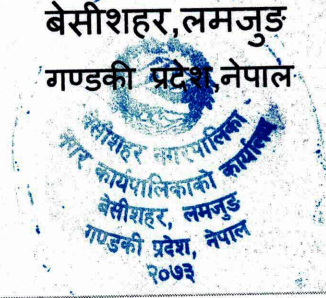 बेसीशहर,लमजुङ
गण्डकी प्रदेश,नेपाल
बेसीशहर नगरपालिका
नगर कार्यपालिकाको कार्यालय
बेसीशहर, लमजुङ
गण्डकी प्रदेश, नेपाल
२०७३